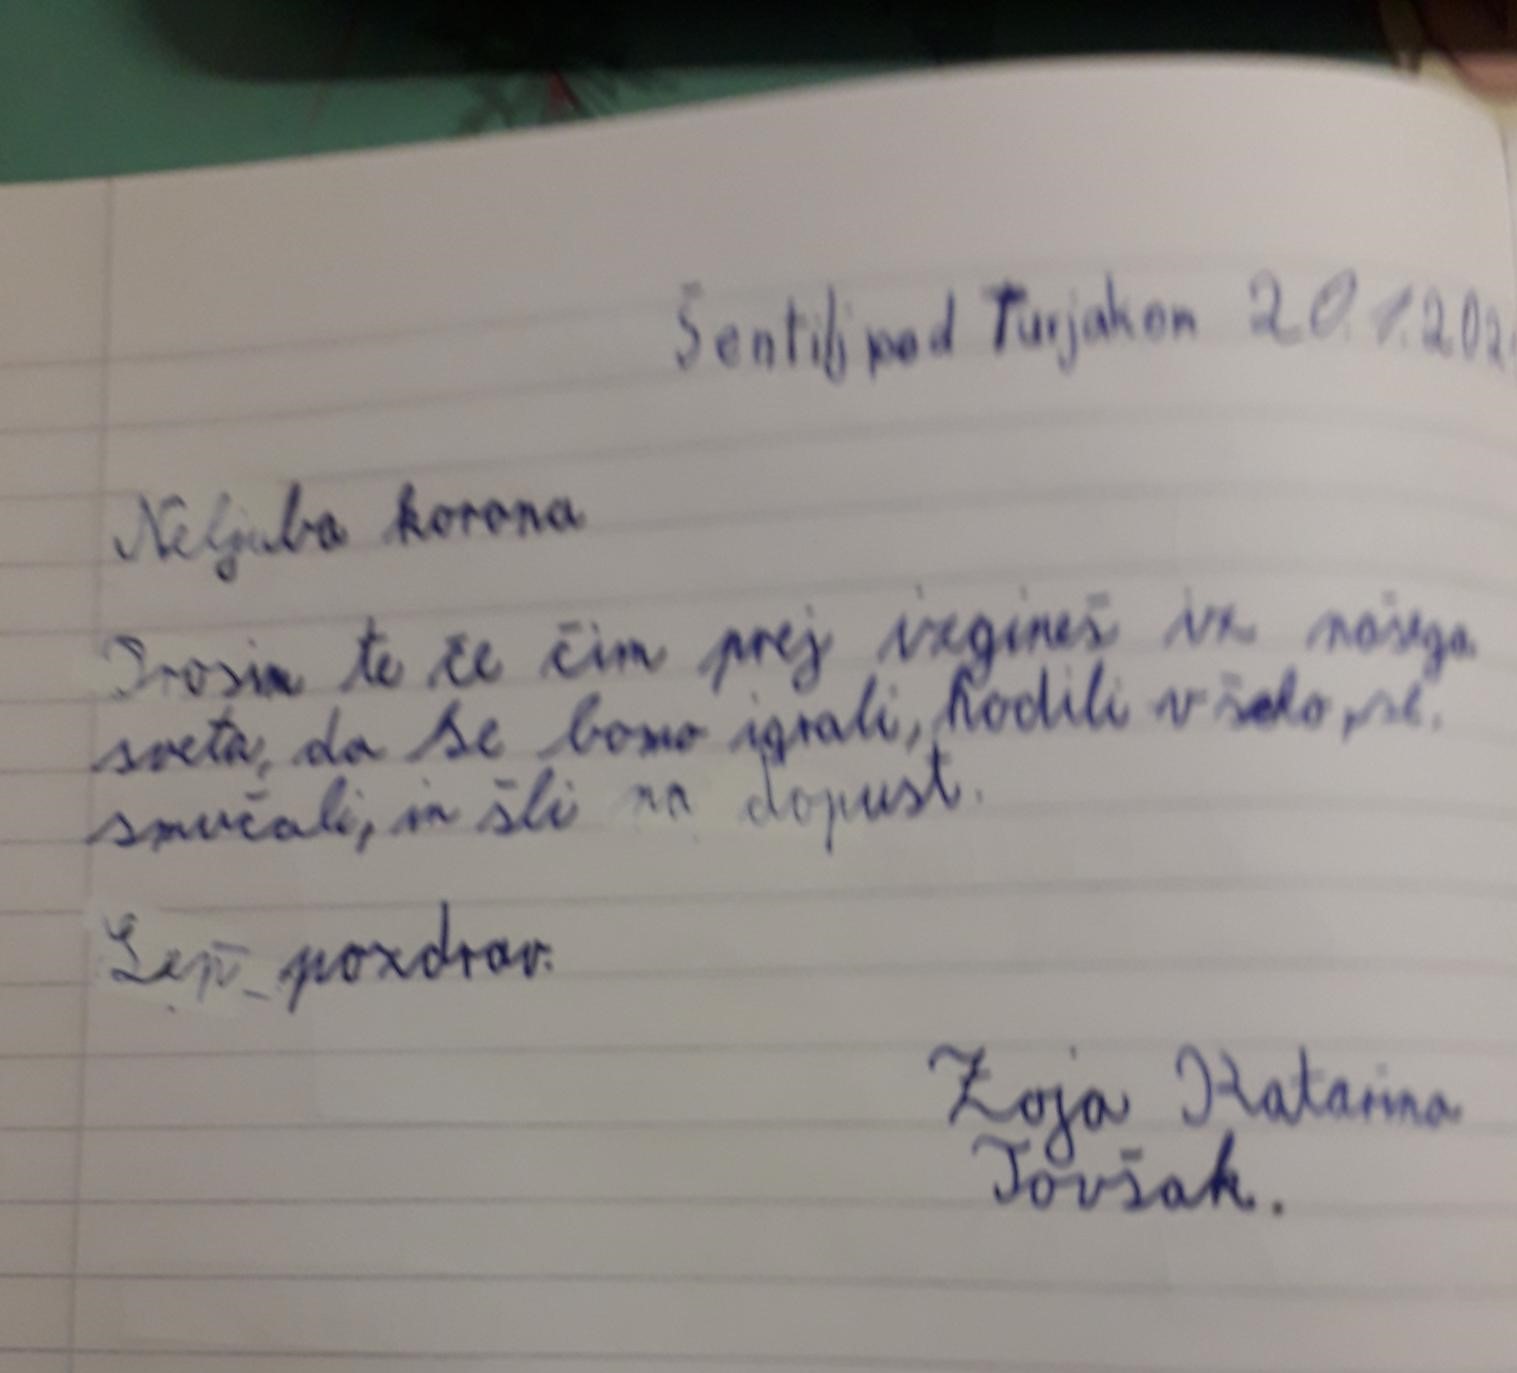 Šentilj pod Turjakom 20.1.202
Neljuba korona
Prosim te če čim prej izgineš iz našega
sveta, da se bomo igrali, hodili v šolo, se
smučali, in šli na dopust.
Lep pozdrav.
Zoja Katarina
Tovšak.